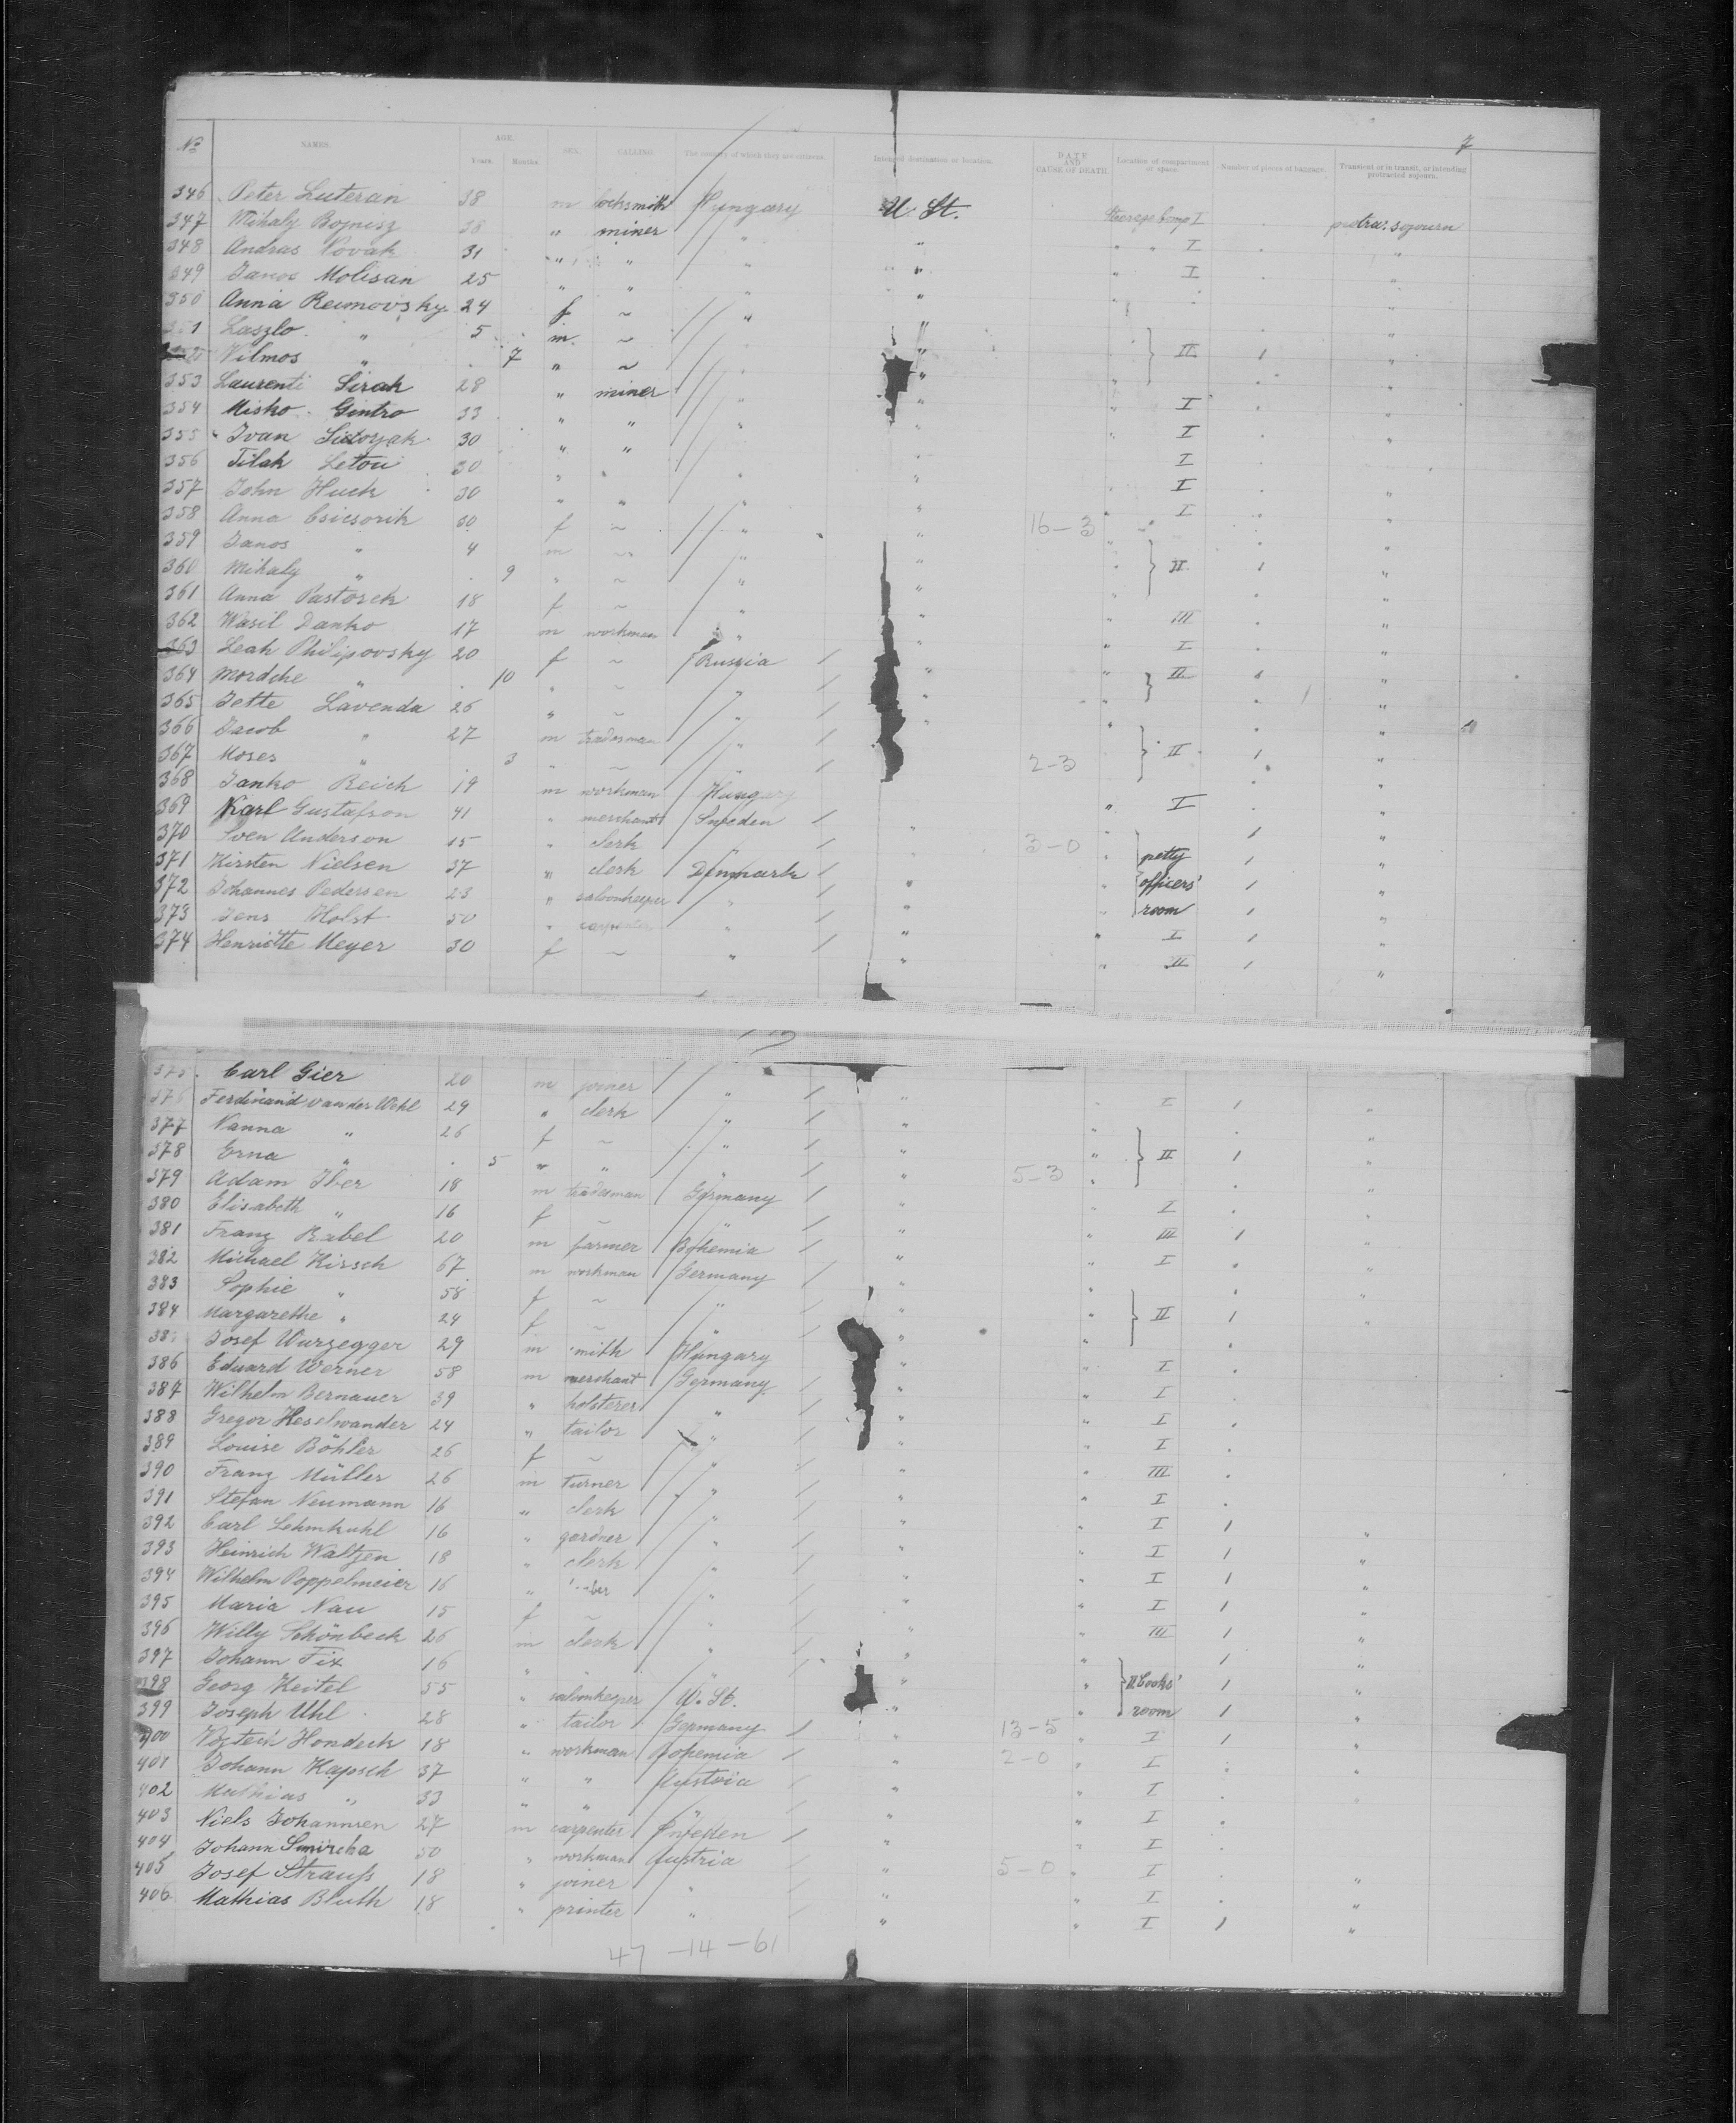 7
No NAMES. AGE. Years Months SEX. CALLING The country of which they are citizens. Intended destination or location. DATE AND CAUSE OF DEATH. Location of compartment or space. Number of pieces of baggage. Transient or in transit, or intending protracted sojourn.
346 Peter Luteran 38 m locksmith Hungary U. St. Steerage Comp I protra. sojourn
347 Mihaly Bojnisz 38 " miner " " " " I "
348 Andras Novak 31 " " " " " I "
349 Janos Molisan 25 " " " " "
350 Anna Reimovsky 24 f ~ " " "
351 Laszlo " 5 m ~ " " II 1 "
352 Vilmos " 7 " ~ " " "
353 Laurenti Sirak 28 " miner " " " I "
354 Misko Gintro 33 " " " " " I "
355 Ivan Sidorjak 30 " " " " I
356 Tilak Letou 30 " " " " I "
357 John Huck 30 " " " " " I "
358 Anna Csicsorik 30 f ~ " " 16-3 " "
359 Janos " 4 m ~ " " II 1 "
360 Mihaly " 9 " ~ " " " "
361 Anna Pastorek 18 f ~ " " " III "
362 Wasil Danko 17 m workman " " " I "
363 Leah Philipovsky 20 f ~ Russia " " II 1 "
364 Mordche " 10 " ~ " " " "
365 Jette Lavenda 26 " ~ " " " "
366 Jacob " 27 m tradesman " II 1 "
367 Moses " 3 " ~ " 2-3 "
368 Janko Reich 19 m workman Hungary " I "
369 Karl Gustafson 41 " merchant Sweden " " 1 "
370 Sven Anderson 15 " clerk " 3-0 " petty 1 "
371 Kirsten Nielsen 37 " clerk Denmark " " officers' 1 "
372 Johannes Pedersen 23 " saloonkeeper " " " room 1 "
373 Jens Holst 50 " carpenter " " " I 1 "
374 Henriette Meyer 30 f ~ " " " III 1 "
375 Carl Gier 20 m joiner " " " I 1 "
376 Ferdinand van der Wehl 29 " clerk " " " "
377 Nanna " 26 f ~ " " " II 1
378 Erna " 5 " " " " 5-3 " "
379 Adam Iber 18 m tradesman Germany " " I "
380 Elisabeth " 16 f ~ " " " III 1
381 Franz Babel 20 m farmer Bohemia " " I "
382 Michael Kirsch 67 m workman Germany " " "
383 Sophie " 58 f ~ " " II 1 "
384 Margarethe " 24 f ~ " " "
38 Josef Wurzegger 29 m smith Hungary " " I
386 Eduard Werner 58 m merchant Germany " " I
387 Wilhelm Bernauer 39 " holsterer " " " I
388 Gregor Heselwander 24 " tailor " " " I
389 Louise Böhler 26 f ~ " " " III
390 Franz Müller 26 m turner " " " I
391 Stefan Neumann 16 " clerk " " " I 1 "
392 Carl Lehmkuhl 16 " gardner " " " I 1 "
393 Heinrich Waltzen 18 " clerk " " " I 1 "
394 Wilhelm Poppelmeier 16 " " " " I 1 "
395 Maria Nau 15 f ~ " " " III 1 "
396 Willy Schönbeck 26 m clerk " " " 1 "
397 Johann Fix 16 " " " " " II. Cooks' 1 "
398 Georg Keitel 55 " saloonkeeper U. St. " " room 1 "
399 Joseph Uhl 28 " tailor Germany " 13-5 " I 1 "
400 Vojtech Hondeck 18 " workman Bohemia " 2-0 " I "
401 Johann Kapsch 37 " " Austria " " I
402 Mathias " 33 " " " " " I
403 Niels Johannsen 27 m carpenter Sweden " " I
404 Johann Smircha 50 " workman Austria " 5-0 " I "
405 Josef Strauß 18 " joiner " " " I "
406 Mathias Bluth 18 " printer " " " I 1 "
47 -14 -61